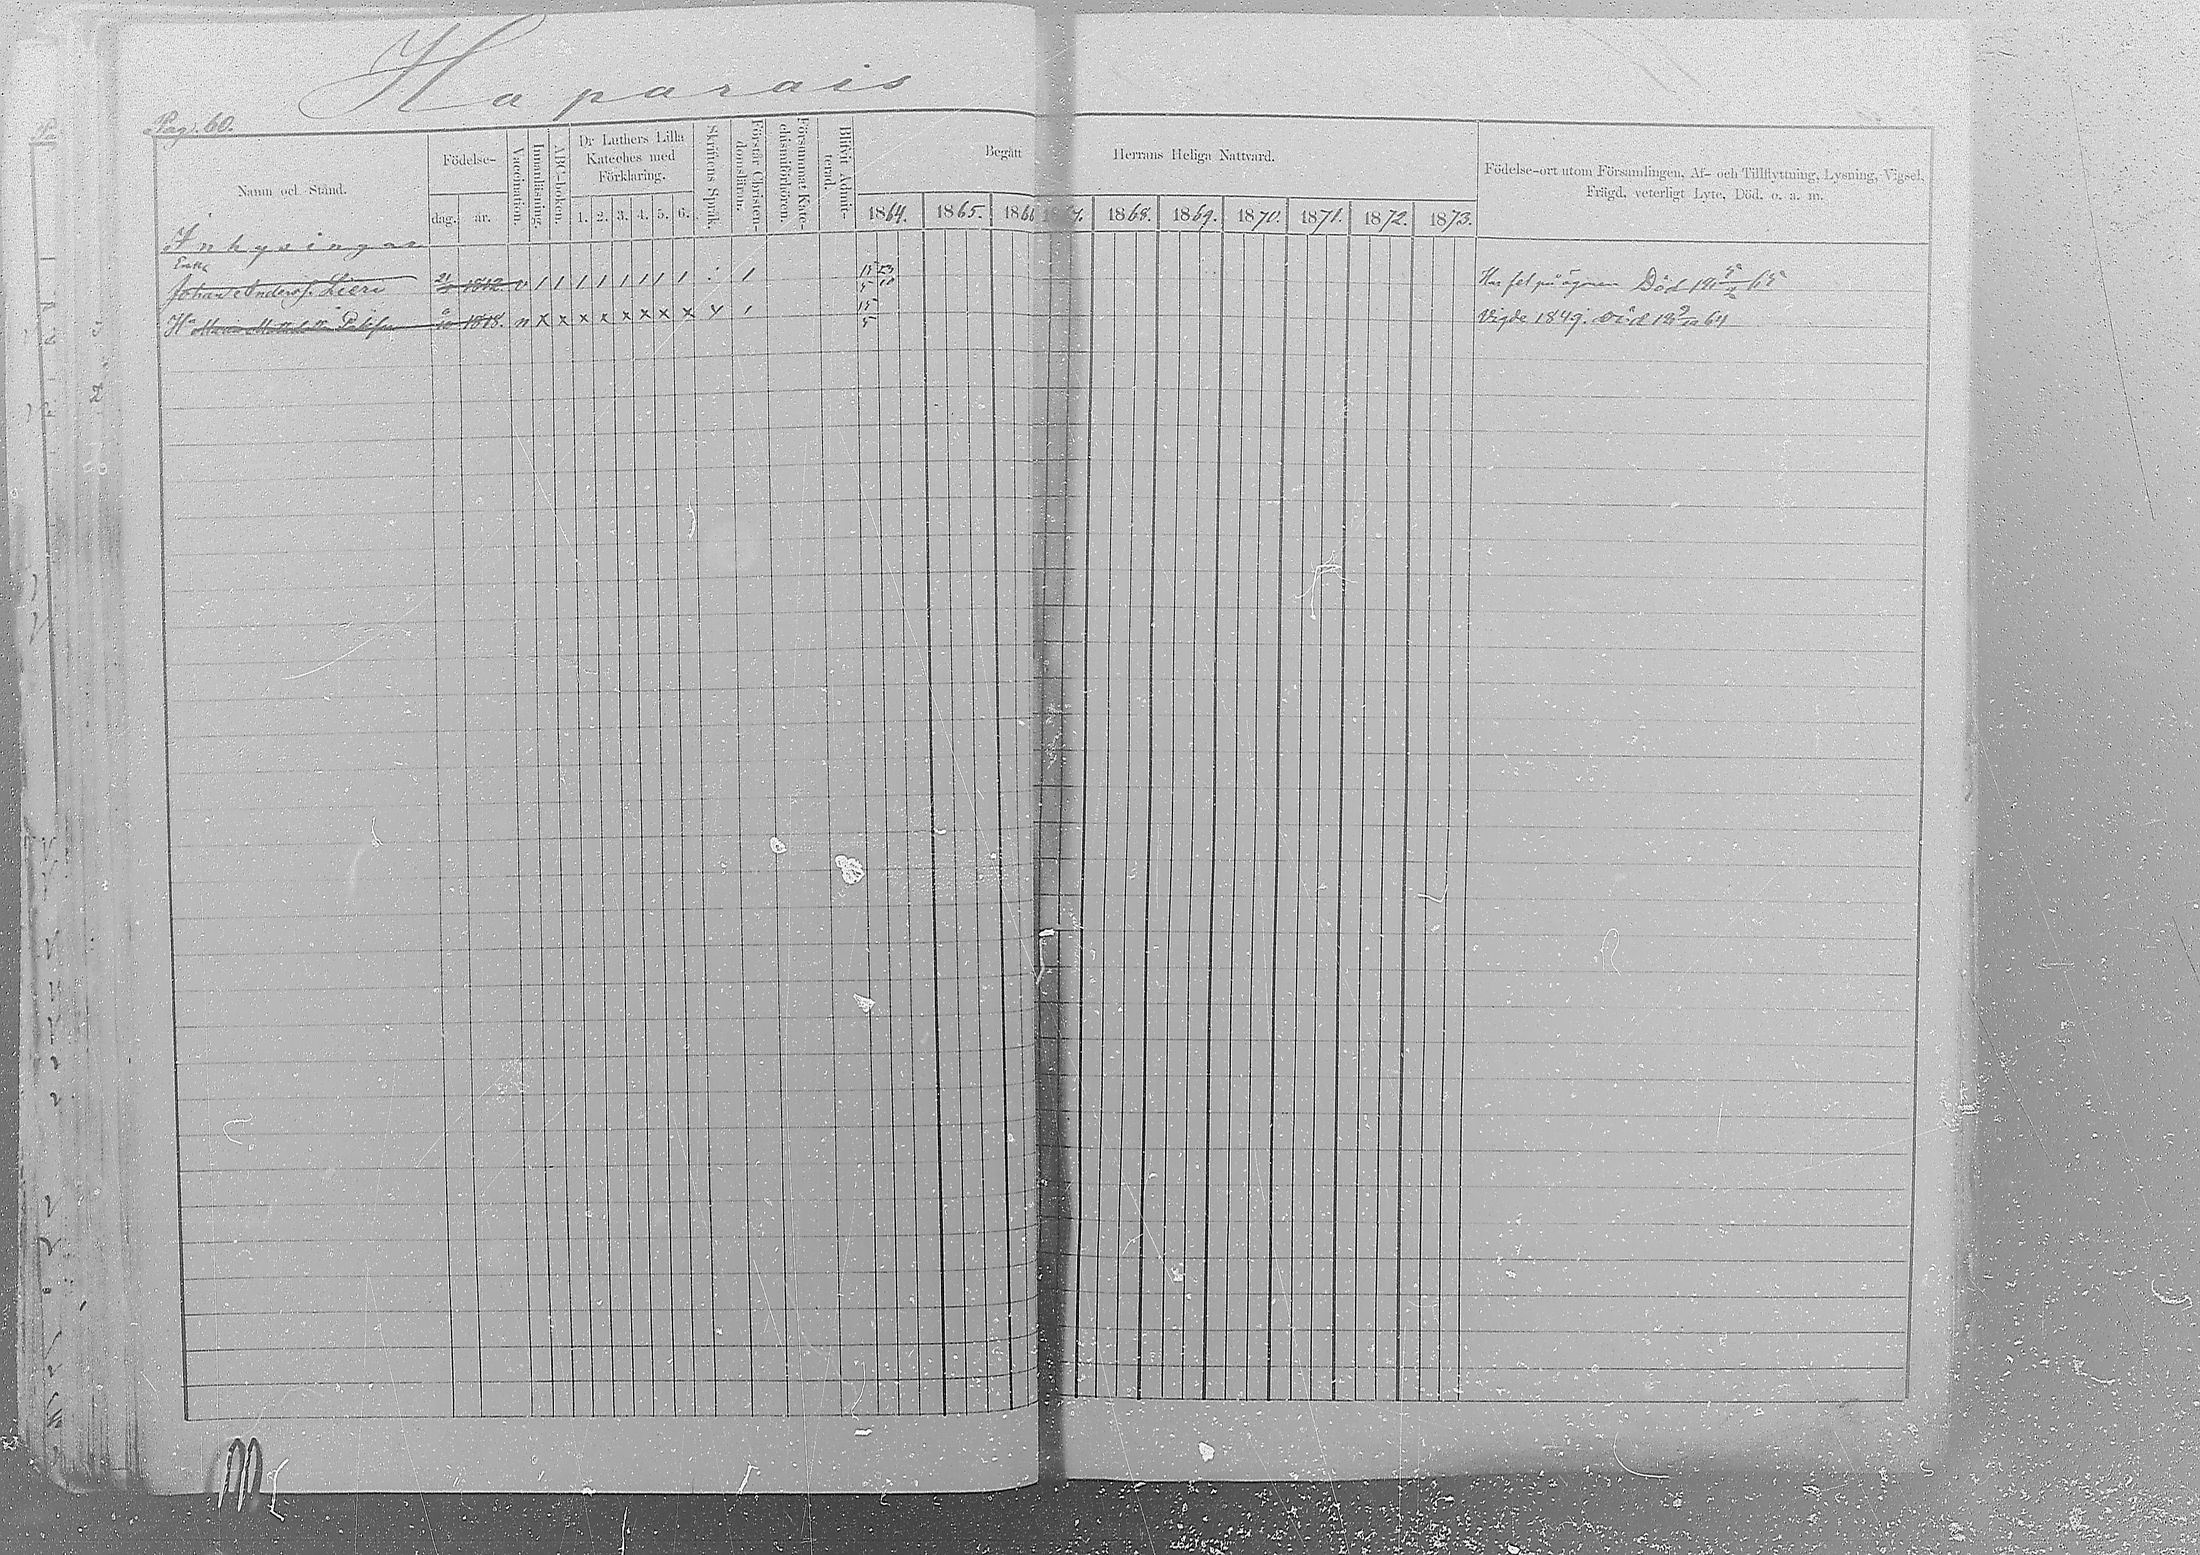 Haparais
Pag. 60.
Namn och Stånd.
Födelse-
dag. år.
Vaccination.
Innanläsning.
ABC-boken.
Dr Luthers Lilla
Kateches med
Förklaring.
1. 2. 3. 4. 5. 6.
Skriftens Språk.
Förstår Christen-
domsläran.
Försummat Kate-
chismiförhören.
Blifvit Admit-
terad.
Begått Herrans Heliga Nattvard.
1864. 1865. 186 7. 1868. 1869. 1870. 1871. 1872. 1873.
Födelse-ort utom Församlingen, Af- och Tillflyttning, Lysning, Vigsel,
Frägd, veterligt Lyte, Död. o. a. m.
Inhysingar
Enkl.
Johan Andersf. Lieri 1812 v 1 1 1 1 1 1 1 1 1 Har fel på ögonen Död 65
Hu Maria 1818. n x x x x x x x x Vigde 1849. Död 64